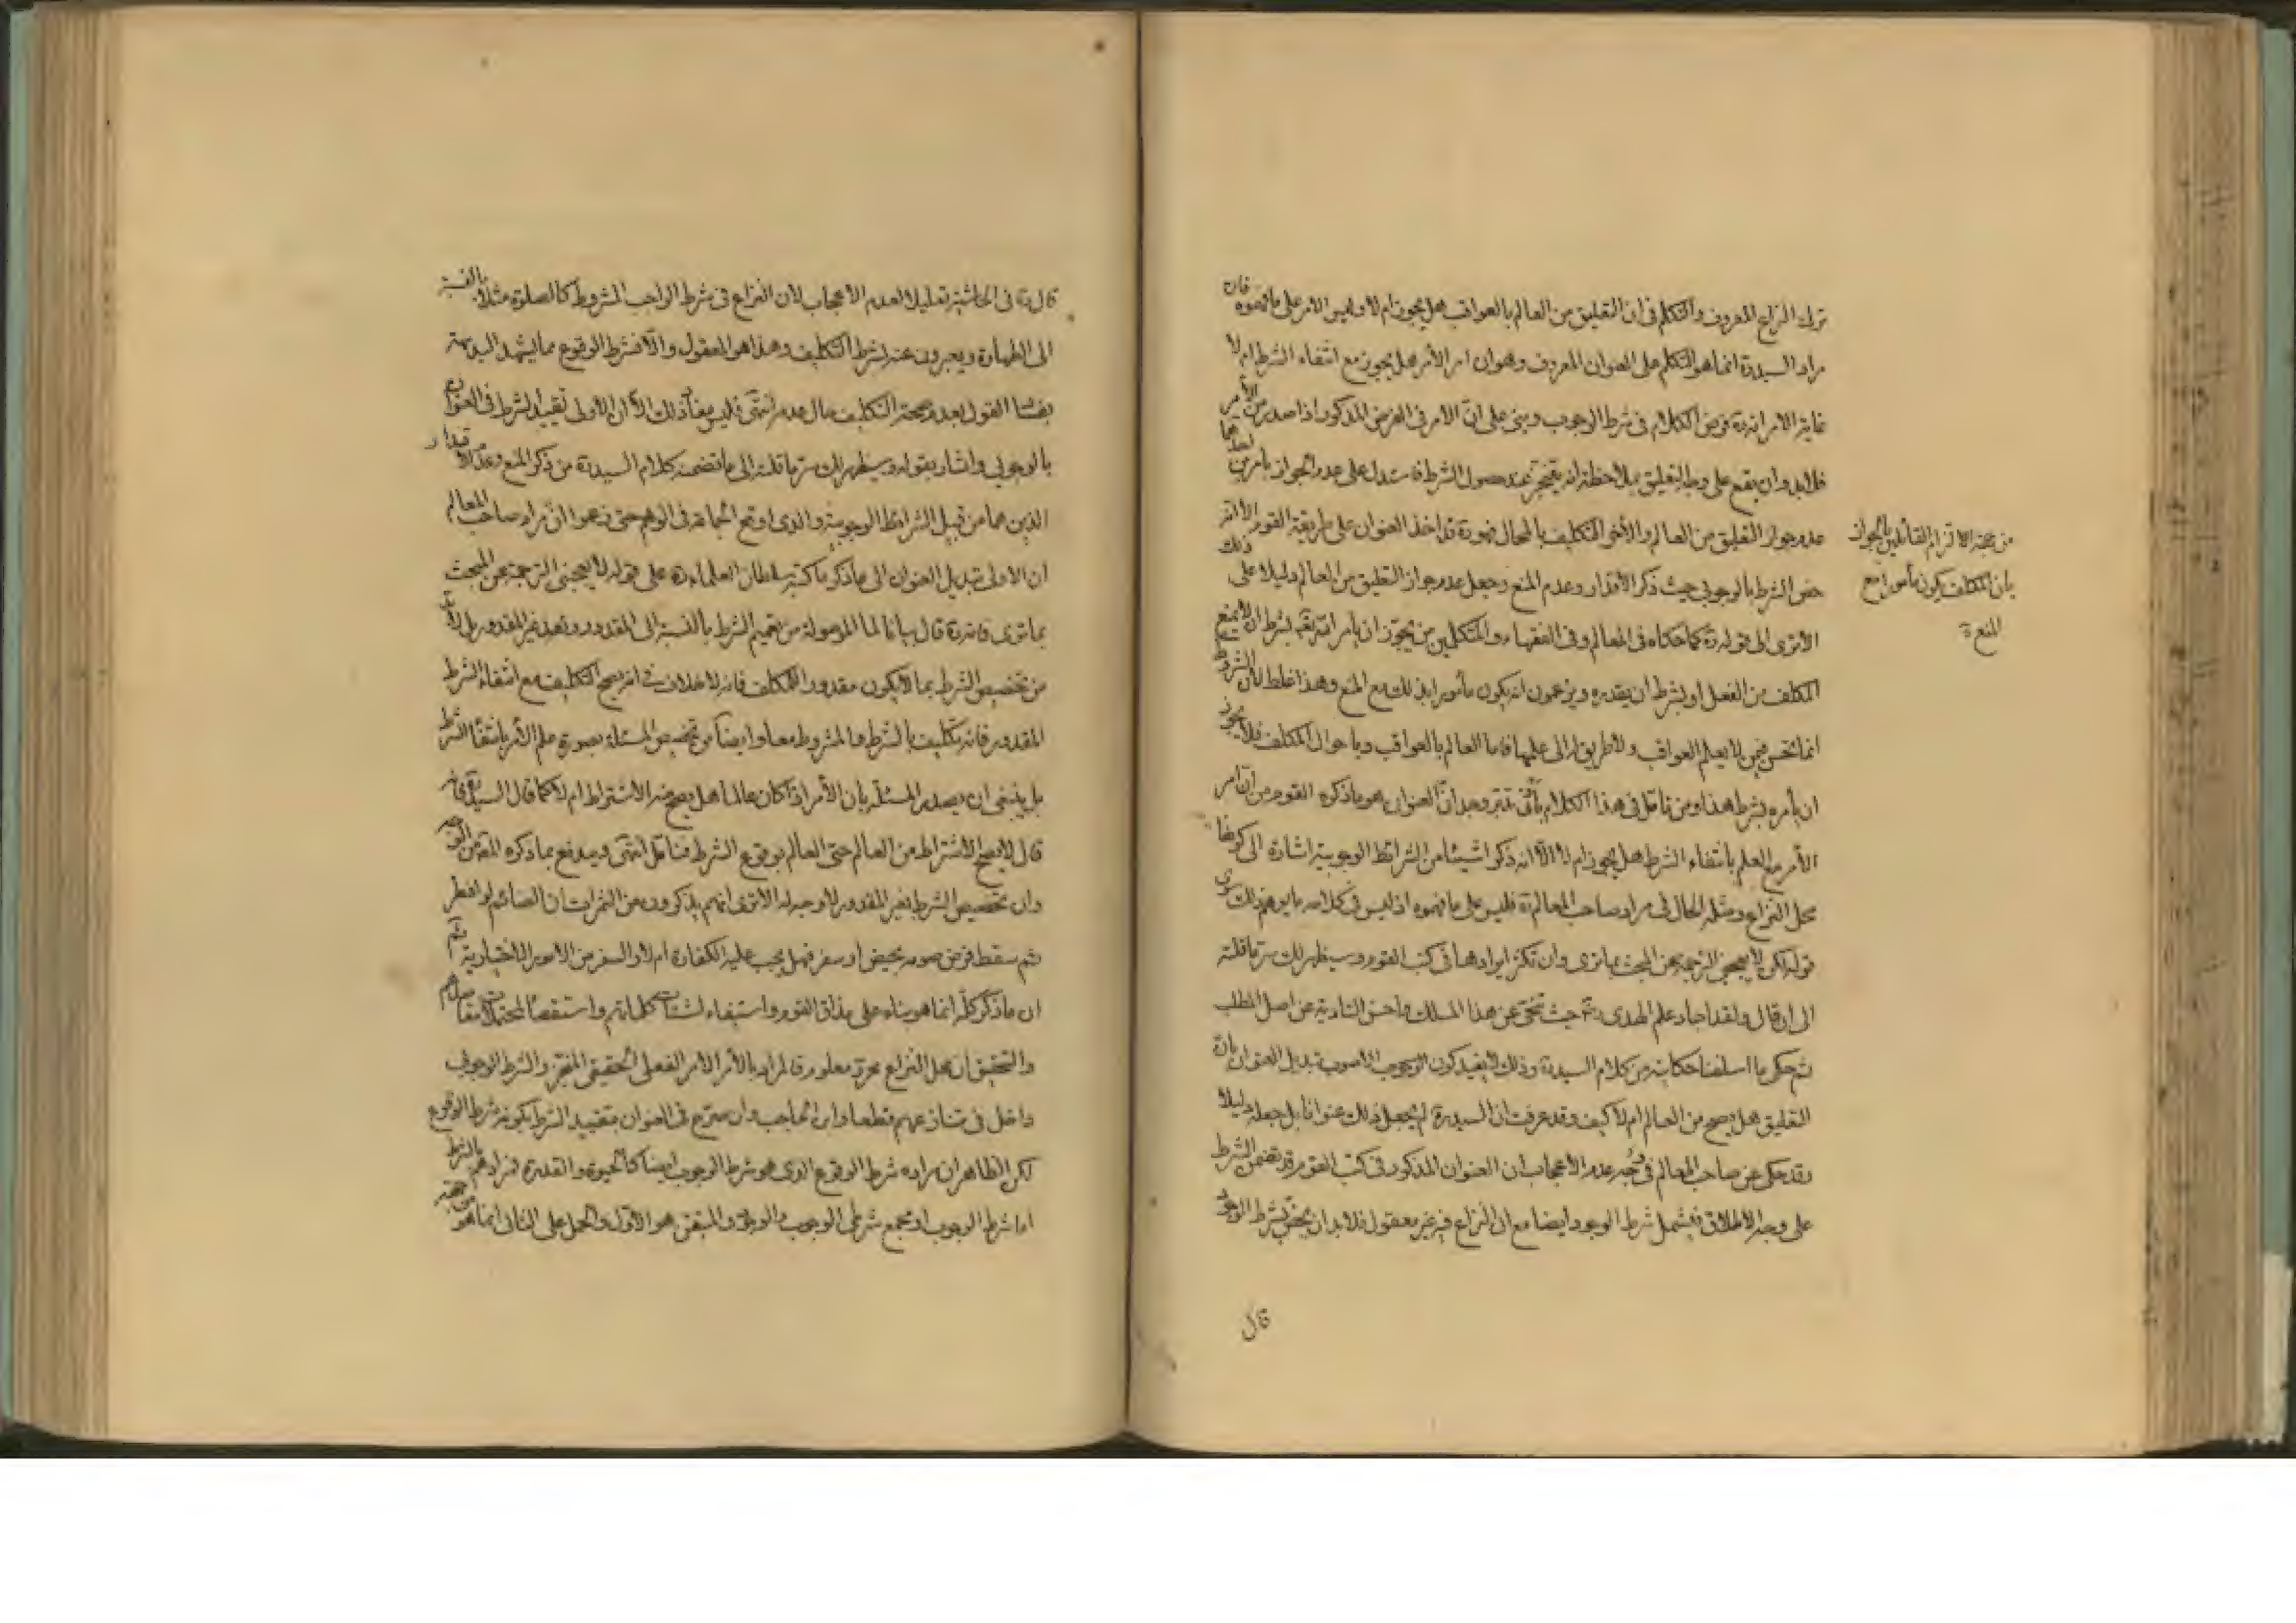 ترك النزاع المعروف والتكلم في ان التعليق من العالم بالعواقب هل يجوز ام لا وليس الامر على ما فهموه فان
مراد السيد ره انما هو التكلم على العنوان المعروف وهو ان امر الآمر هل يجوز مع انتفاء الشرط ام لا
غاية الامر انه ره فرض الكلام في شرط الوجوب وبنى على ان الامر في الفرض المذكور اذا صدر من الآمر
فلابد وان يقع على وجه التعليق بملاحظة انه يتنجز عند حصول الشرط فاستدل على عدم الجواز بامرين احدهما
عدم جواز التعليق من العالم والآخر التكليف بالمحال فهو ره قد اخذ العنوان على طريقة القوم الا انه
خص الشرط بالوجوبي حيث ذكر الاقدار وعدم المنع وجعل عدم جواز التعليق من العالم دليلا على ذلك
الا ترى الى قوله ره كما حكاه في المعالم وفي الفقهاء والمتكلمين من يجوز ان يأمر الله تعالى بشرط ان لا يمنع
المكلف من الفعل او بشرط ان يقدره ويزعمون انه يكون مأمورا بذلك مع المنع وهذا غلط لان الشرط
انما يحسن فيمن لا يعلم العواقب ولا طريق له الى علمها فاما العالم بالعواقب وباحوال المكلف فلا يجوز
ان يأمره بشرط هذا ومن تأمل في هذا الكلام وجد ان العنوان هو ما ذكره القوم من ان امر
الآمر مع العلم بانتفاء الشرط هل يجوز ام لا الا انه ذكر اشيئا من الشرائط الوجوبية اشارة الى كونها
محل النزاع ومثله الحال في مراد صاحب المعالم ره فليس على ما فهموه اذ ليس في كلامه ما يوهم ذلك سوى
قوله لكن لا يعجبني الترجمة عن البحث بما ترى وان تكثر ايرادها في كتب القوم وسيظهر لك سر ما قلته
الى ان قال ولقد اجاد علم الهدى ره حيث تنحى عن هذا المسلك واحسن التادية عن اصل المطلب
ثم حكى ما اسلفنا حكايته من كلام السيد ره وذلك لا يفيد كون الوجوب الاصوب تبديل العنوان بان
التعليق هل يصح من العالم ام لا كيف وقد عرفت ان السيد ره لم يجعل ذلك عنوانا بل جعله دليلا
وقد حكى عن صاحب المعالم في وجه عدم الاعجاب ان العنوان المذكور في كتب القوم قد تضمن الشرط
على وجه الاطلاق فيشمل شرط الوجود ايضا مع ان النزاع فيه غير معقول فلا بد ان يختص بشرط الوجوب
قال
من جهة الالتزام القائلين بالجواز
بان المكلف يكون مأمورا مع
المنع ره
قال ره في الحاشية تعليلا لعدم الاعجاب لان النزاع في شرط الواجب المشروط كالصلوة مثلا بالنسبة
الى الطهارة ويعبرون عنه بشرط التكليف وهذا هو المعقول والا فشرط الوقوع مما يشهد البديهة
بفساد القول بعدم صحة التكليف حال عدمه انتهى فليس مفاد ذلك الا ان الاولى تقييد الشرط في العنوان
بالوجوبي واشار بقوله وسيظهر لك سر ما قلته الى ما تضمنه كلام السيد ره من ذكر المنع وعدم الاقدار
الذين هما من قبيل الشرائط الوجوبية والذي اوقع الجماعة في الوهم حتى زعموا ان مراد صاحب المعالم
ان الاولى تبديل العنوان الى ما ذكر ما كتبه سلطان العلماء ره على قوله لا يعجبني الترجمة عن البحث
بما ترى فانه ره قال من تعميم الشرط بالنسبة الى المقدور وغير المقدور بل لا بد
من تخصيص الشرط بما لا يكون مقدورا للمكلف فانه لا خلاف في انه يصح التكليف مع انتفاء الشرط
المقدور فانه تكليف بالشرط والمشروط معا وايضا من تخصيص المسئلة بصورة علم الآمر بانتفاء الشرط
بل ينبغي ان يصدر المسئلة بان الآمر اذا كان عالما هل يصح منه الاشتراط ام لا كما قال السيد ره فانه
قال لا يصح الاشتراط من العالم حتى العالم بوقوع الشرط فتأمل انتهى ويدفع بما ذكره
وان تخصيص الشرط بغير المقدور لا وجه له الا ترى انهم يذكرون من الثمرات ان الصائم لو افطر
ثم سقط فرض صومه بحيض او سفر فهل يجب عليه الكفارة ام لا والسفر من الامور الاختيارية ثم
ان ما ذكر كله انما هو بناء على مذاق القوم واستيفاء لشتات كلماتهم واستقصاء لمحتملات مقاصدهم
والتحقيق ان محل النزاع محرر معلوم فالمراد بالامر الامر الفعلي الحقيقي المنجز والشرط الوجوبي
داخل في تنازعهم قطعا وابن الحاجب وان صرح في العنوان بتقييد الشرط بكونه شرط الوقوع
لكن الظاهر ان مراده شرط الوقوع الذي هو شرط الوجوب ايضا كالحيوة والقدرة فمرادهم بالشرط
اما شرط الوجوب او مجمع شرطي الوجوب والوجود والمتيقن هو الاول والحمل على الثاني انما هو من جهة